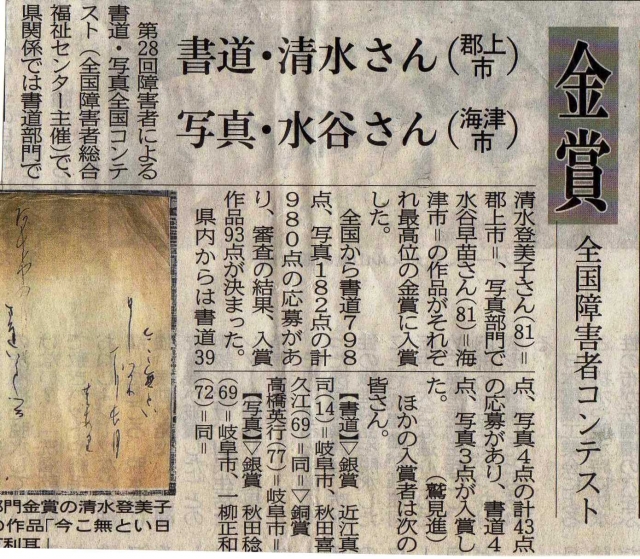 金賞
全国障害者コンテスト
書道・清水さん（郡上市）
写真・水谷さん（海津市）
第28回障害者による
書道・写真全国コンテ
スト（全国障害者総合
福祉センター主催）で、
県関係では書道部門で
清水登美子さん（81）＝
郡上市＝、写真部門で
水谷早苗さん（81）＝海
津市＝の作品がそれぞ
れ最高位の金賞に入賞
した。
全国から書道798
点、写真182点の計
980点の応募があ
り、審査の結果、入賞
作品93点が決まった。
県内からは書道39
点、写真4点の計43点
の応募があり、書道4
点、写真3点が入賞し
た。
（鷲見進）
ほかの入賞者は次の
皆さん。
【書道】▽銀賞　近江真
司（14）＝岐阜市、秋田喜
久江（69）＝同＝▽銅賞
高橋英行（77）＝岐阜市＝
【写真】▽銀賞　秋田稔
（69）＝岐阜市、一柳正和
（72）＝同＝
部門金賞の清水登美子
の作品「今こ無といひ